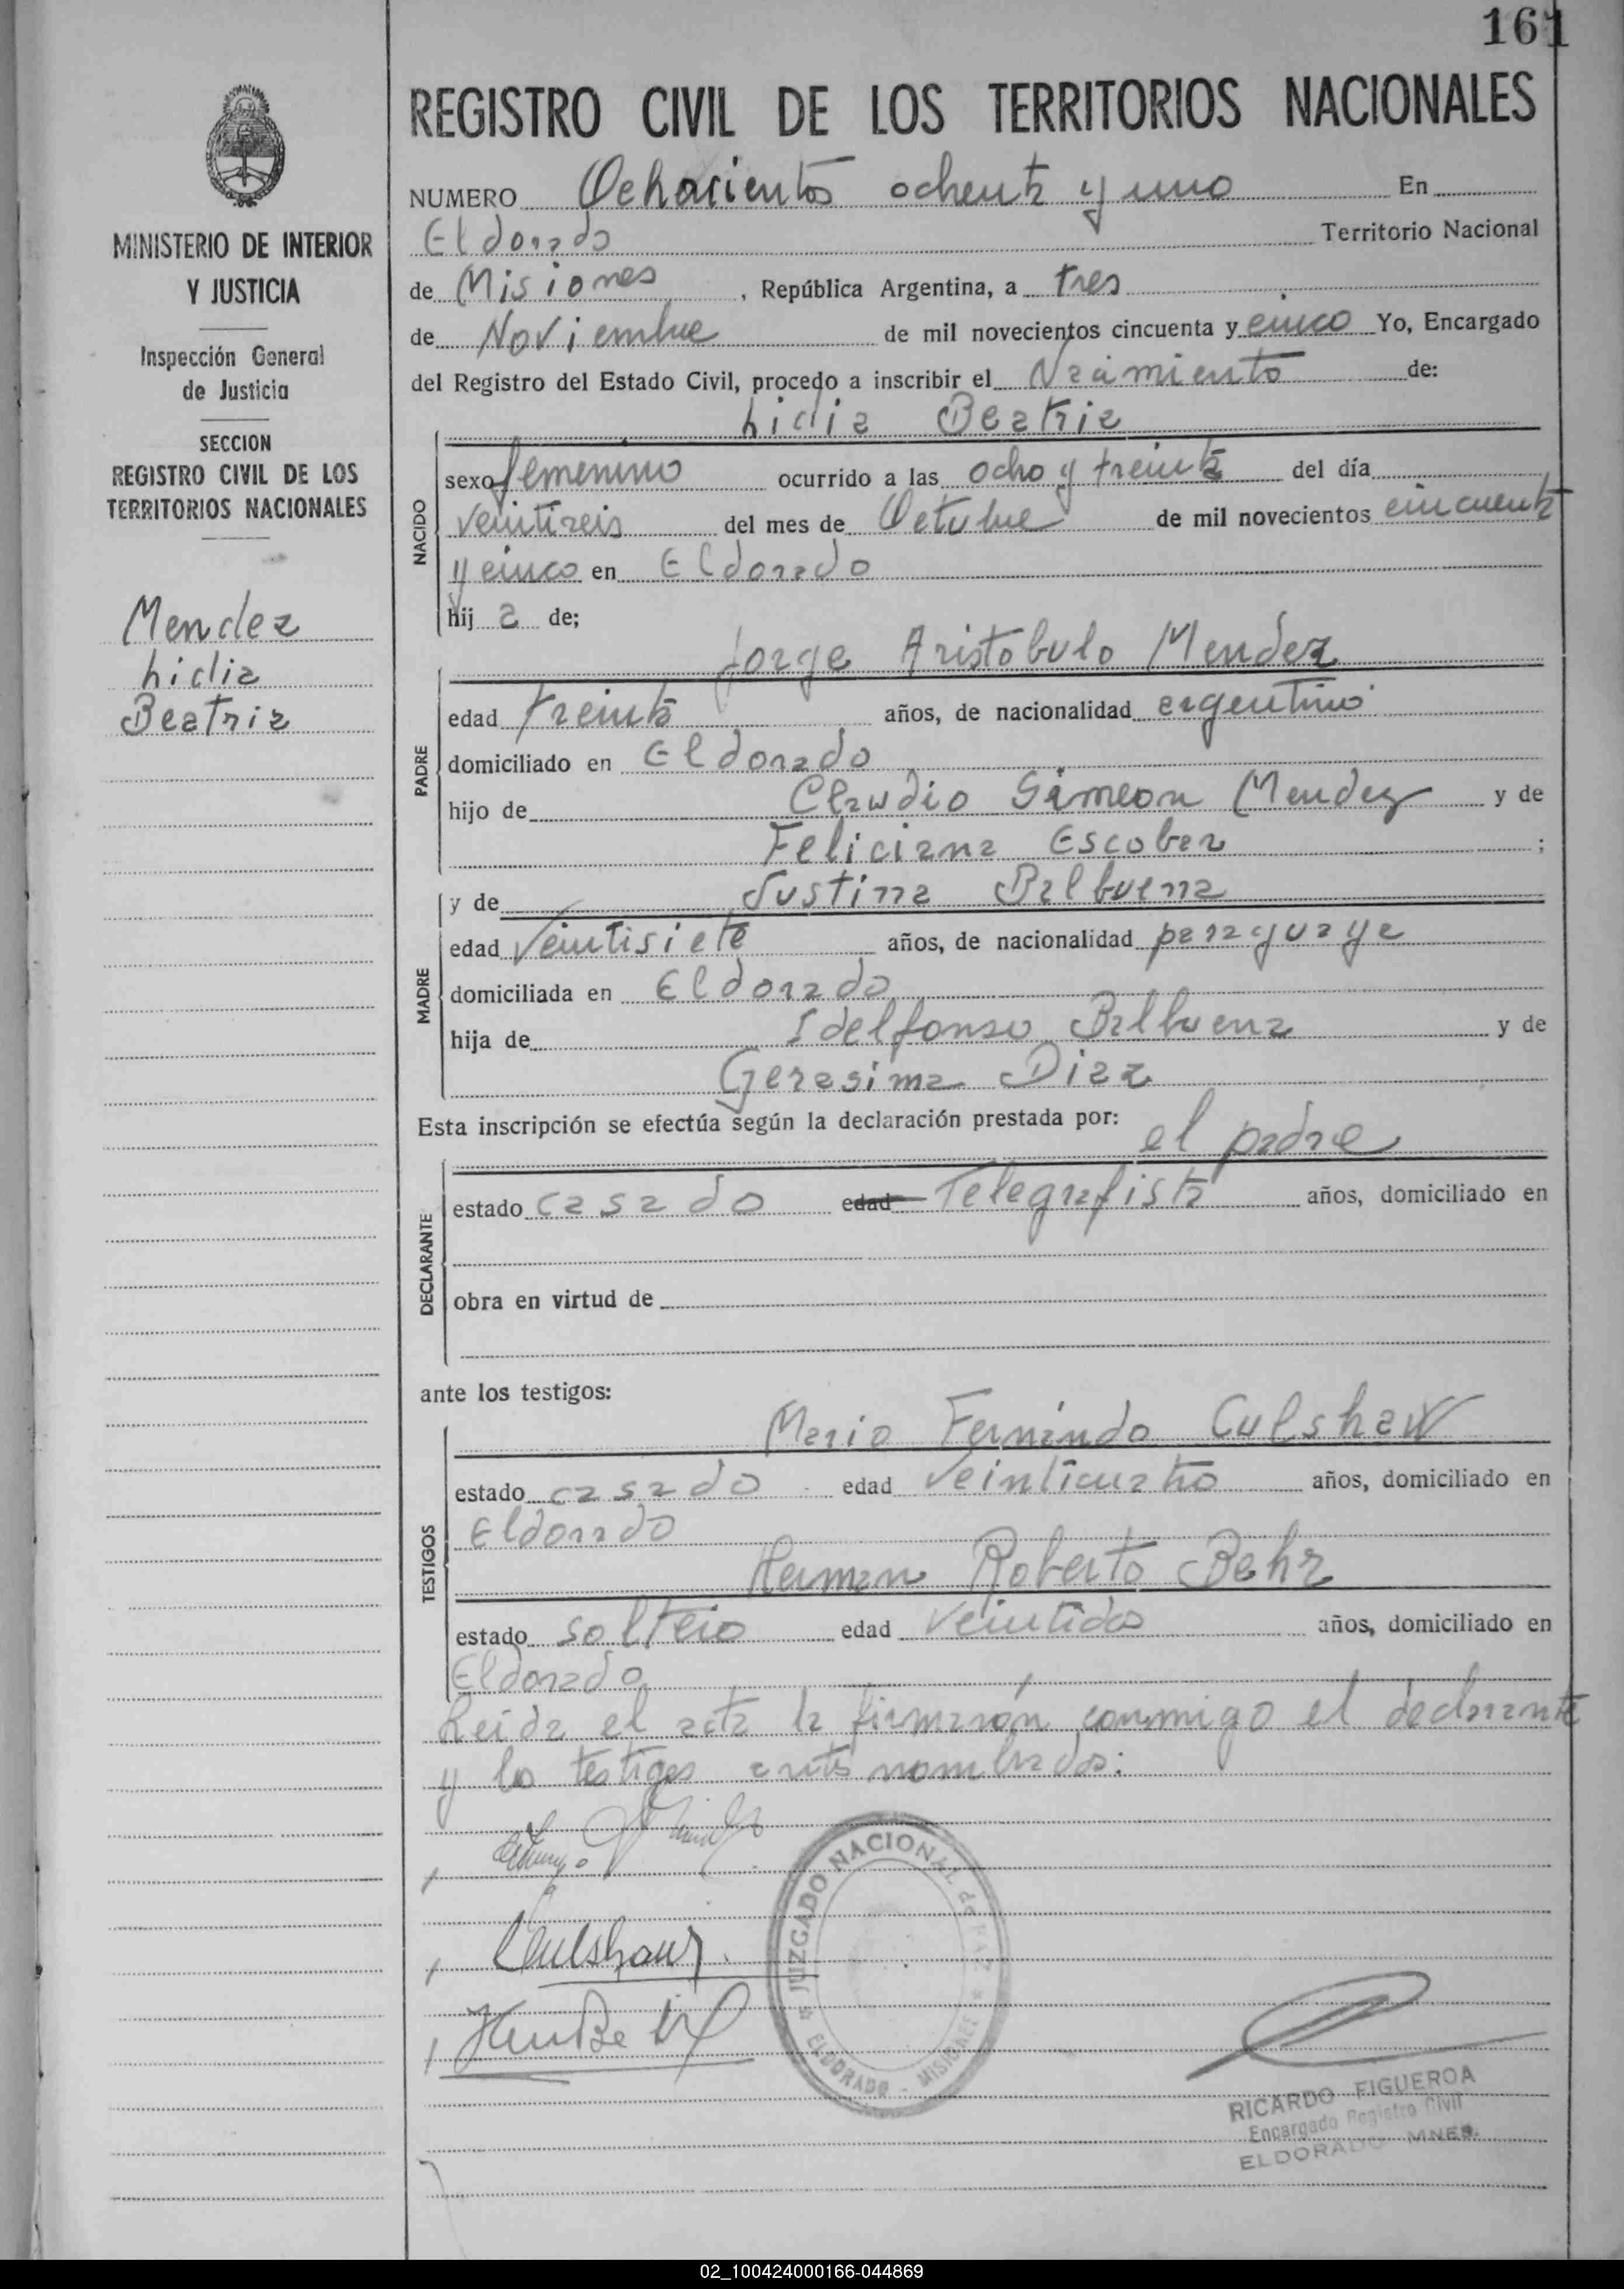 161
REGISTRO CIVIL DE LOS TERRITORIOS NACIONALES
MINISTERIO DE INTERIOR
Y JUSTICIA
Inspección General
de Justicia
SECCION
REGISTRO CIVIL DE LOS
TERRITORIOS NACIONALES
Mendez
Lidia
Beatriz
NUMERO Ochocientos ochenta y uno En
Eldorado Territorio Nacional
de Misiones , República Argentina, a tres
de Noviembre de mil novecientos cincuenta y cinco Yo, Encargado
del Registro del Estado Civil, procedo a inscribir el Nacimiento de:
Lidia Beatriz
NACIDO
sexo femenino ocurrido a las ocho y treinta del día
veintiseis del mes de Octubre de mil novecientos cincuenta
y cinco en Eldorado
hij a de;
Jorge Aristobulo Mendez
PADRE
edad treinta años, de nacionalidad argentino
domiciliado en Eldorado
hijo de Claudio Simeon Mendez y de
Feliciana Escobar ;
y de Justina Balbuena
MADRE
edad Veintisiete años, de nacionalidad paraguaya
domiciliada en Eldorado
hija de Idelfonso Balbuena y de
Gerasima Diaz
Esta inscripción se efectúa según la declaración prestada por:
el padre
DECLARANTE
estado casado edad Telegrafista años, domiciliado en
obra en virtud de
ante los testigos:
Mario Fernando Culshaw
TESTIGOS
estado casado edad veinticuatro años, domiciliado en
Eldorado
Herman Roberto Behr
estado soltero edad veintidos años, domiciliado en
Eldorado
Leida el acta la firmarón conmigo el declarante
y los testigos antes nombrados:
Culshaw
JUZGADO NACIONAL de PAZ
ELDORADO - MISIONES
RICARDO FIGUEROA
Encargado Registro Civil
ELDORADO MNES.
02_100424000166-044869